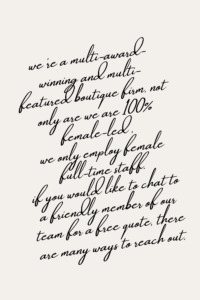 we're a multi-award-
winning and multi-
featured boutique firm. not
only are we are 100%
female-led,
we only employ female
full-time staff.
if you would like to chat to
a friendly member of our
team for a free quote, there
are many ways to reach out.